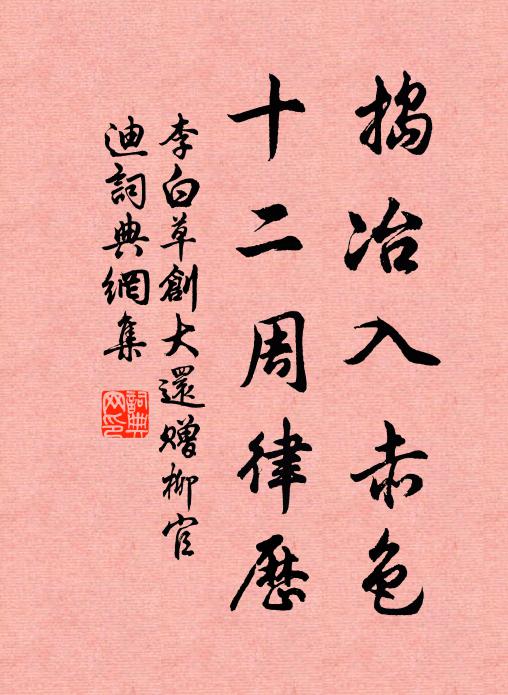 搗冶入赤色
十二周律歷
李白草創大還贈柳官
迪詞典網集
詞典
网印